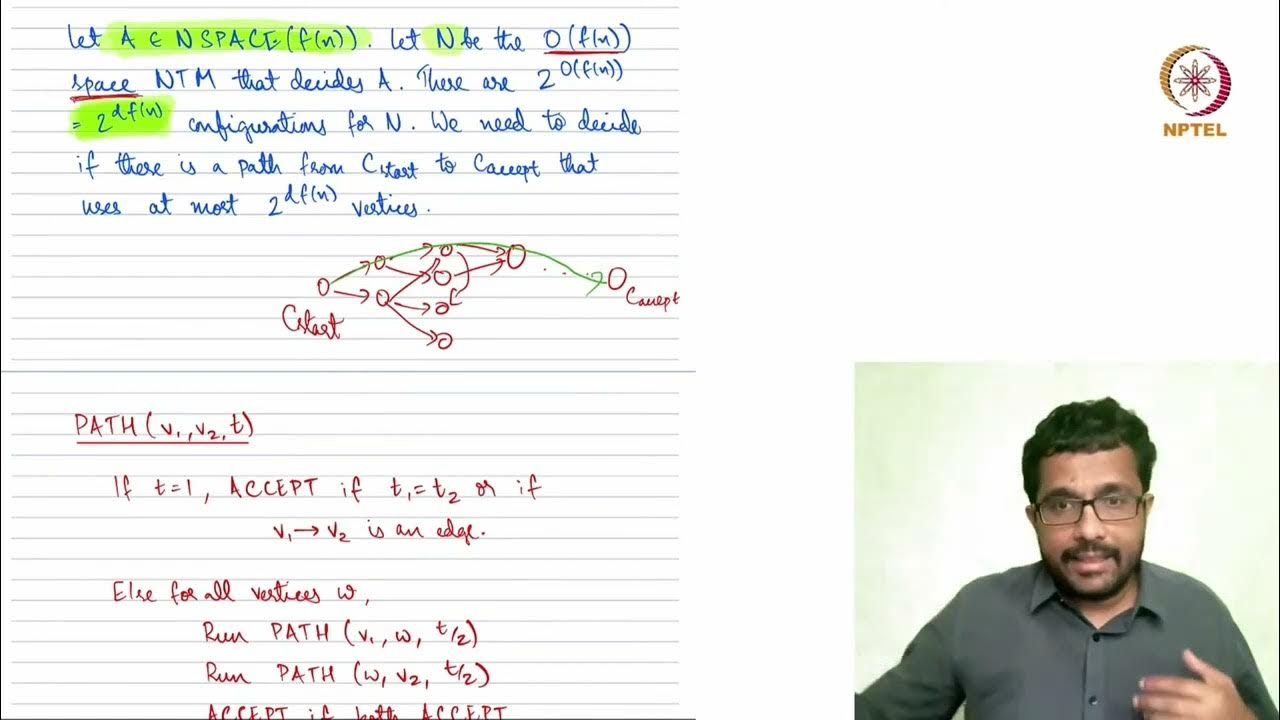 Let A ∈ NSPACE(f(n)). Let N be the O(f(n))
space NTM that decides A. There are 2^O(f(n))
= 2^df(n) configurations for N. We need to decide
if there is a path from Cstart to Caccept that
uses at most 2^df(n) vertices.
Cstart
Caccept
PATH(v₁, v₂, t)
If t=1, ACCEPT if t₁=t₂ or if
v₁→v₂ is an edge.
Else for all vertices w,
Run PATH (v₁, w, t/2)
Run PATH (w, v₂, t/2)
ACCEPT if both ACCEPT
NPTEL